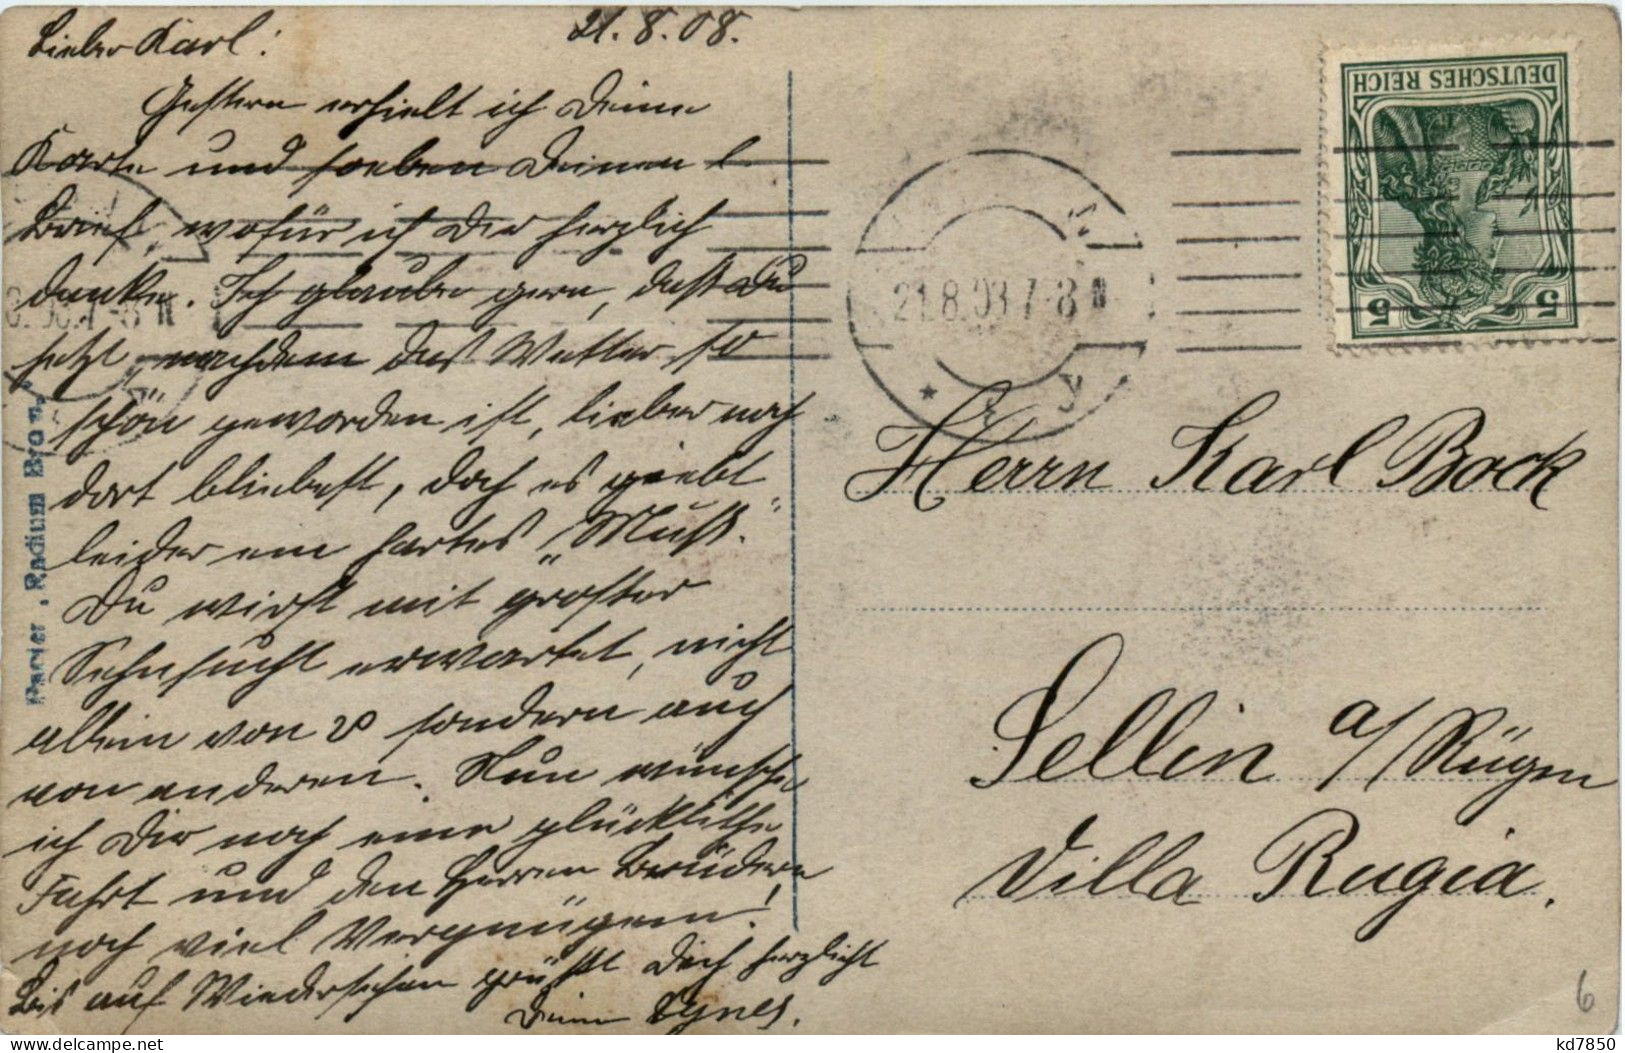 21.8.08.
Lieber Karl!
Gestern erhielt ich Deine
Karte und soeben Deinen l.
Brief, wofür ich Dir herzlich
danke. Ich glaube gern, daß Du
jetzt, nachdem das Wetter so
schön geworden ist, lieber noch
dort bliebest, doch es giebt
leider ein hartes „Muß“.
Du wirst mit größter
Sehnsucht erwartet, nicht
allein von sondern auch
von anderen. Nun wünsche
ich Dir noch eine glückliche
Fahrt und den Herren Brüdern
noch viel Vergnügen!
Bis auf Wiedersehen grüßt Dich herzlich
Deine Agnes.
Papier „Radium Brom“
DEUTSCHES REICH
5 5
21.8.08.7-8N
8.08.7-8N
Herrn Karl Bock
Sellin a/Rügen
Villa Rugia.
6
kd7850